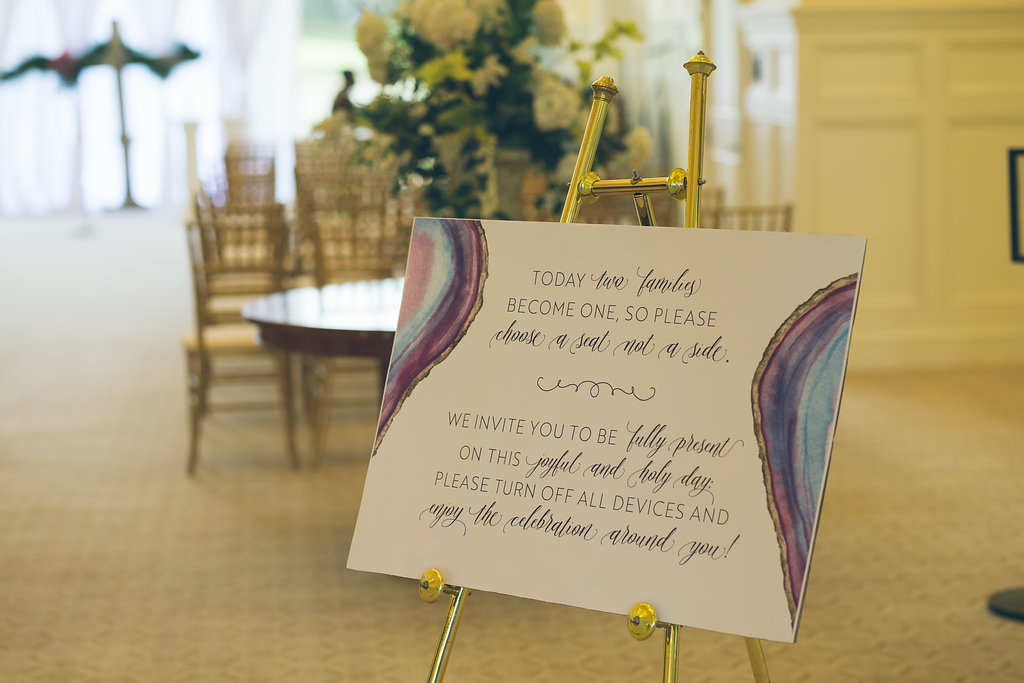 TODAY two families
BECOME ONE, SO PLEASE
choose a seat not a side.
WE INVITE YOU TO BE fully present
ON THIS joyful and holy day;
PLEASE TURN OFF ALL DEVICES AND
enjoy the celebration around you!